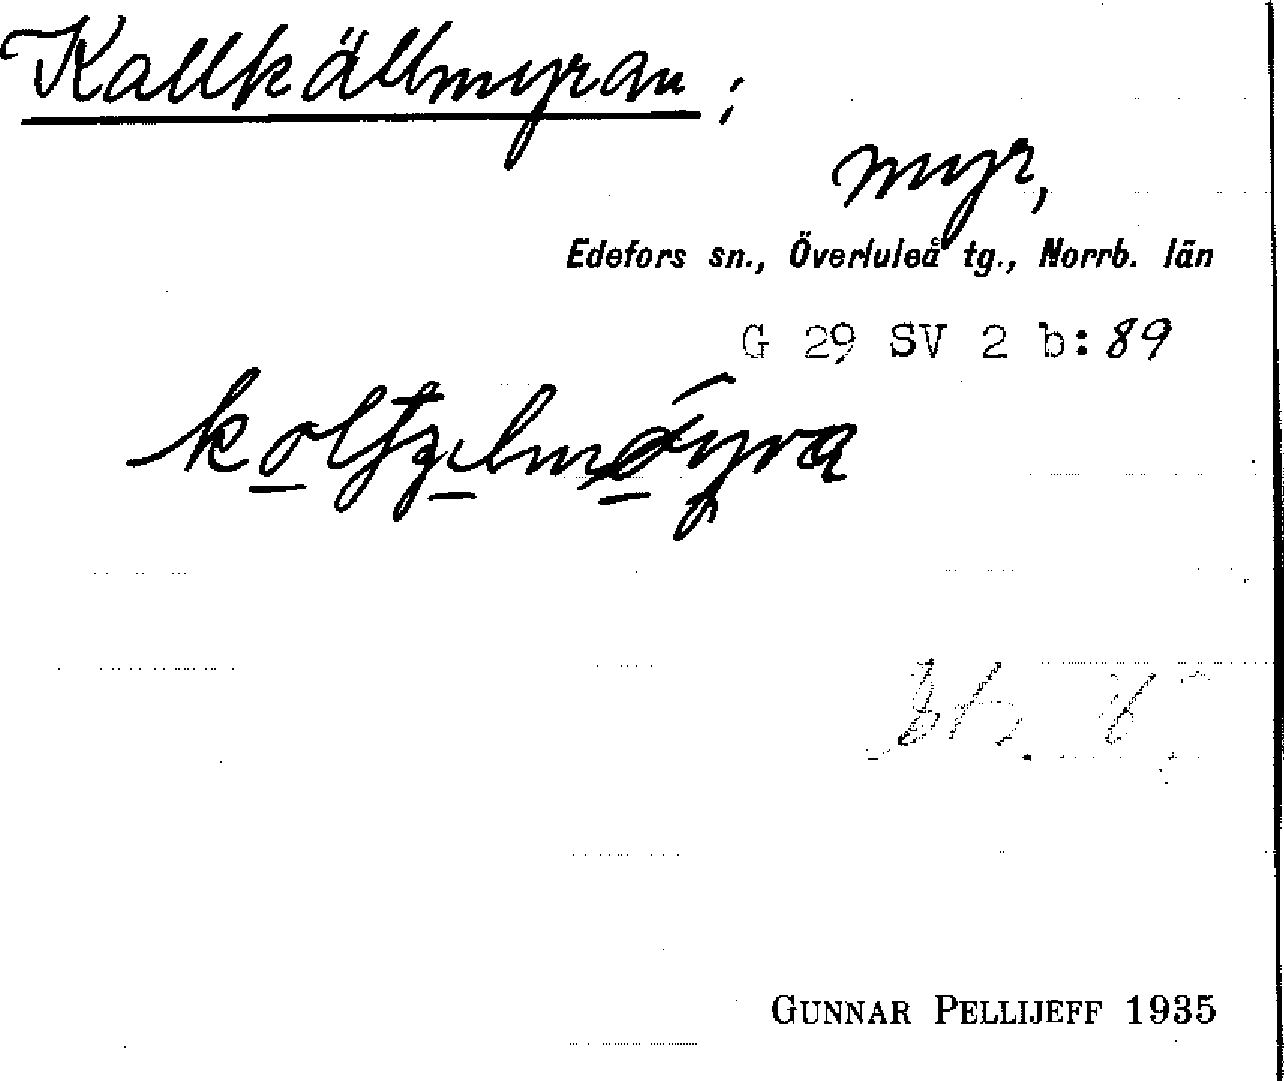 Kallkällmyran;
myr,
Edefors sn., Överluleå tg., Norrb. län
G 29 SV 2 b: 89
GUNNAR PELLIJEFF 1935